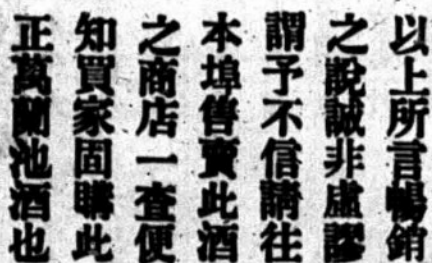 以上所言暢銷
之說誠非虛謬
謂予不信請往
本埠售賣此酒
之商店一查便
知買家固購此
正萬蘭池酒也